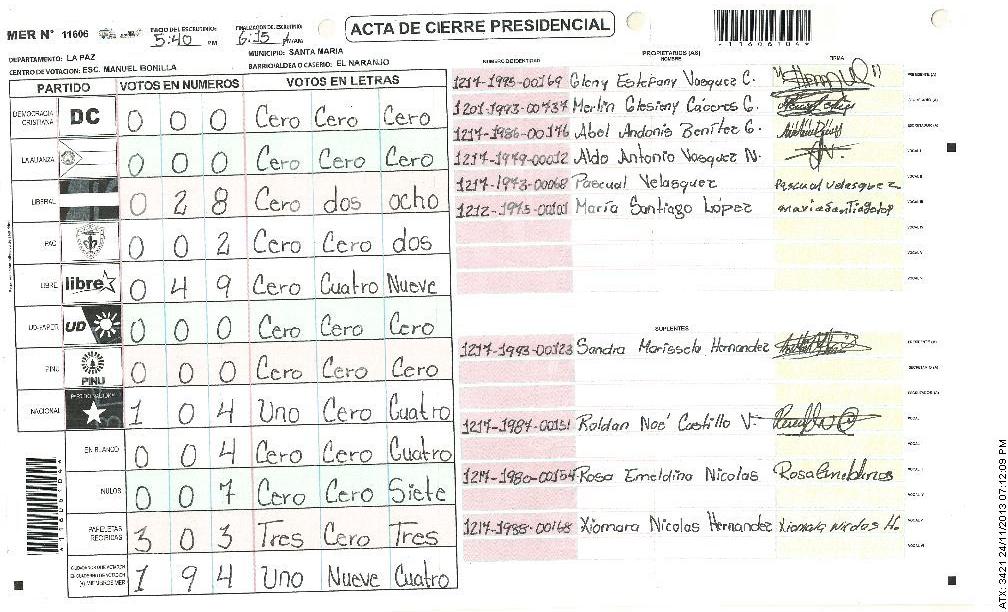 MER N° 11606
INICIO DEL ESCRUTINIO: 5:40 PM
FINALIZACION DEL ESCRUTINIO: 6:15 PM/AM
ACTA DE CIERRE PRESIDENCIAL
*11606104*
DEPARTAMENTO: LA PAZ
MUNICIPIO: SANTA MARIA
CENTRO DE VOTACION: ESC. MANUEL BONILLA
BARRIO/ALDEA O CASERIO: EL NARANJO
PARTIDO VOTOS EN NUMEROS VOTOS EN LETRAS
DEMOCRACIA CRISTIANA DC 0 0 0 Cero Cero Cero
LA ALIANZA 0 0 0 Cero Cero Cero
LIBERAL 0 2 8 Cero dos ocho
PAC 0 0 2 Cero Cero dos
LIBRE libre 0 4 9 Cero Cuatro Nueve
UD-FAPER UD 0 0 0 Cero Cero Cero
PINU PINU 0 0 0 Cero Cero Cero
NACIONAL PARTIDO NACIONAL 1 0 4 Uno Cero Cuatro
EN BLANCO 0 0 4 Cero Cero Cuatro
NULOS 0 0 7 Cero Cero Siete
PAPELETAS RECIBIDAS 3 0 3 Tres Cero Tres
1 9 4 Uno Nueve Cuatro
PROPIETARIOS (AS)
NUMERO DE IDENTIDAD NOMBRE FIRMA
1217-1995-00169 Gleny Estefany Vasquez C. PRESIDENTE (A)
1201-1993-00737 Merlin Glesiony Cáceres G. SECRETARIO (A)
1217-1986-00176 Abel Andonis Benítez G. ESCRUTADOR (A)
1217-1979-00012 Aldo Antonio Vasquez N. VOCAL I
1217-1973-00068 Pascual Velasquez Pascual Velasquez VOCAL II
1212-1975-00101 María Santiago López maria Santiago lop VOCAL III
VOCAL IV
VOCAL V
VOCAL VI
SUPLENTES
1217-1993-00123 Sandra Marissela Hernandez PRESIDENTE (A)
SECRETARIO (A)
ESCRUTADOR (A)
1217-1987-00151 Roldan Noé Castillo V. VOCAL I
1217-1980-00154 Rosa Emeldina Nicolas Rosa Emeldinas
1217-1985-00168 Xiomara Nicolas Hernandez Xiomara Nicolas H. VOCAL V
VOCAL VI
ATX: 3421 24/11/2013 07:12:09 PM